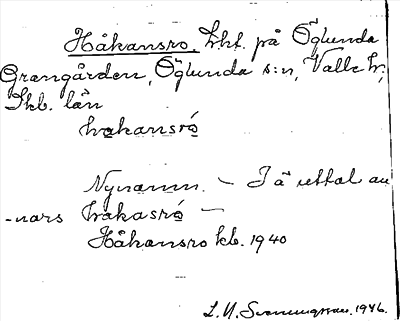 Håkansro, Lht. på Öglunda
Grangården, Öglunda s:n, Valle hd,
Skb. län
håkansró
Nynamn. — I ä uttal an-
-nars håkasró —
Håkansro kb. 1940
L. N. Svenungsson. 1946.